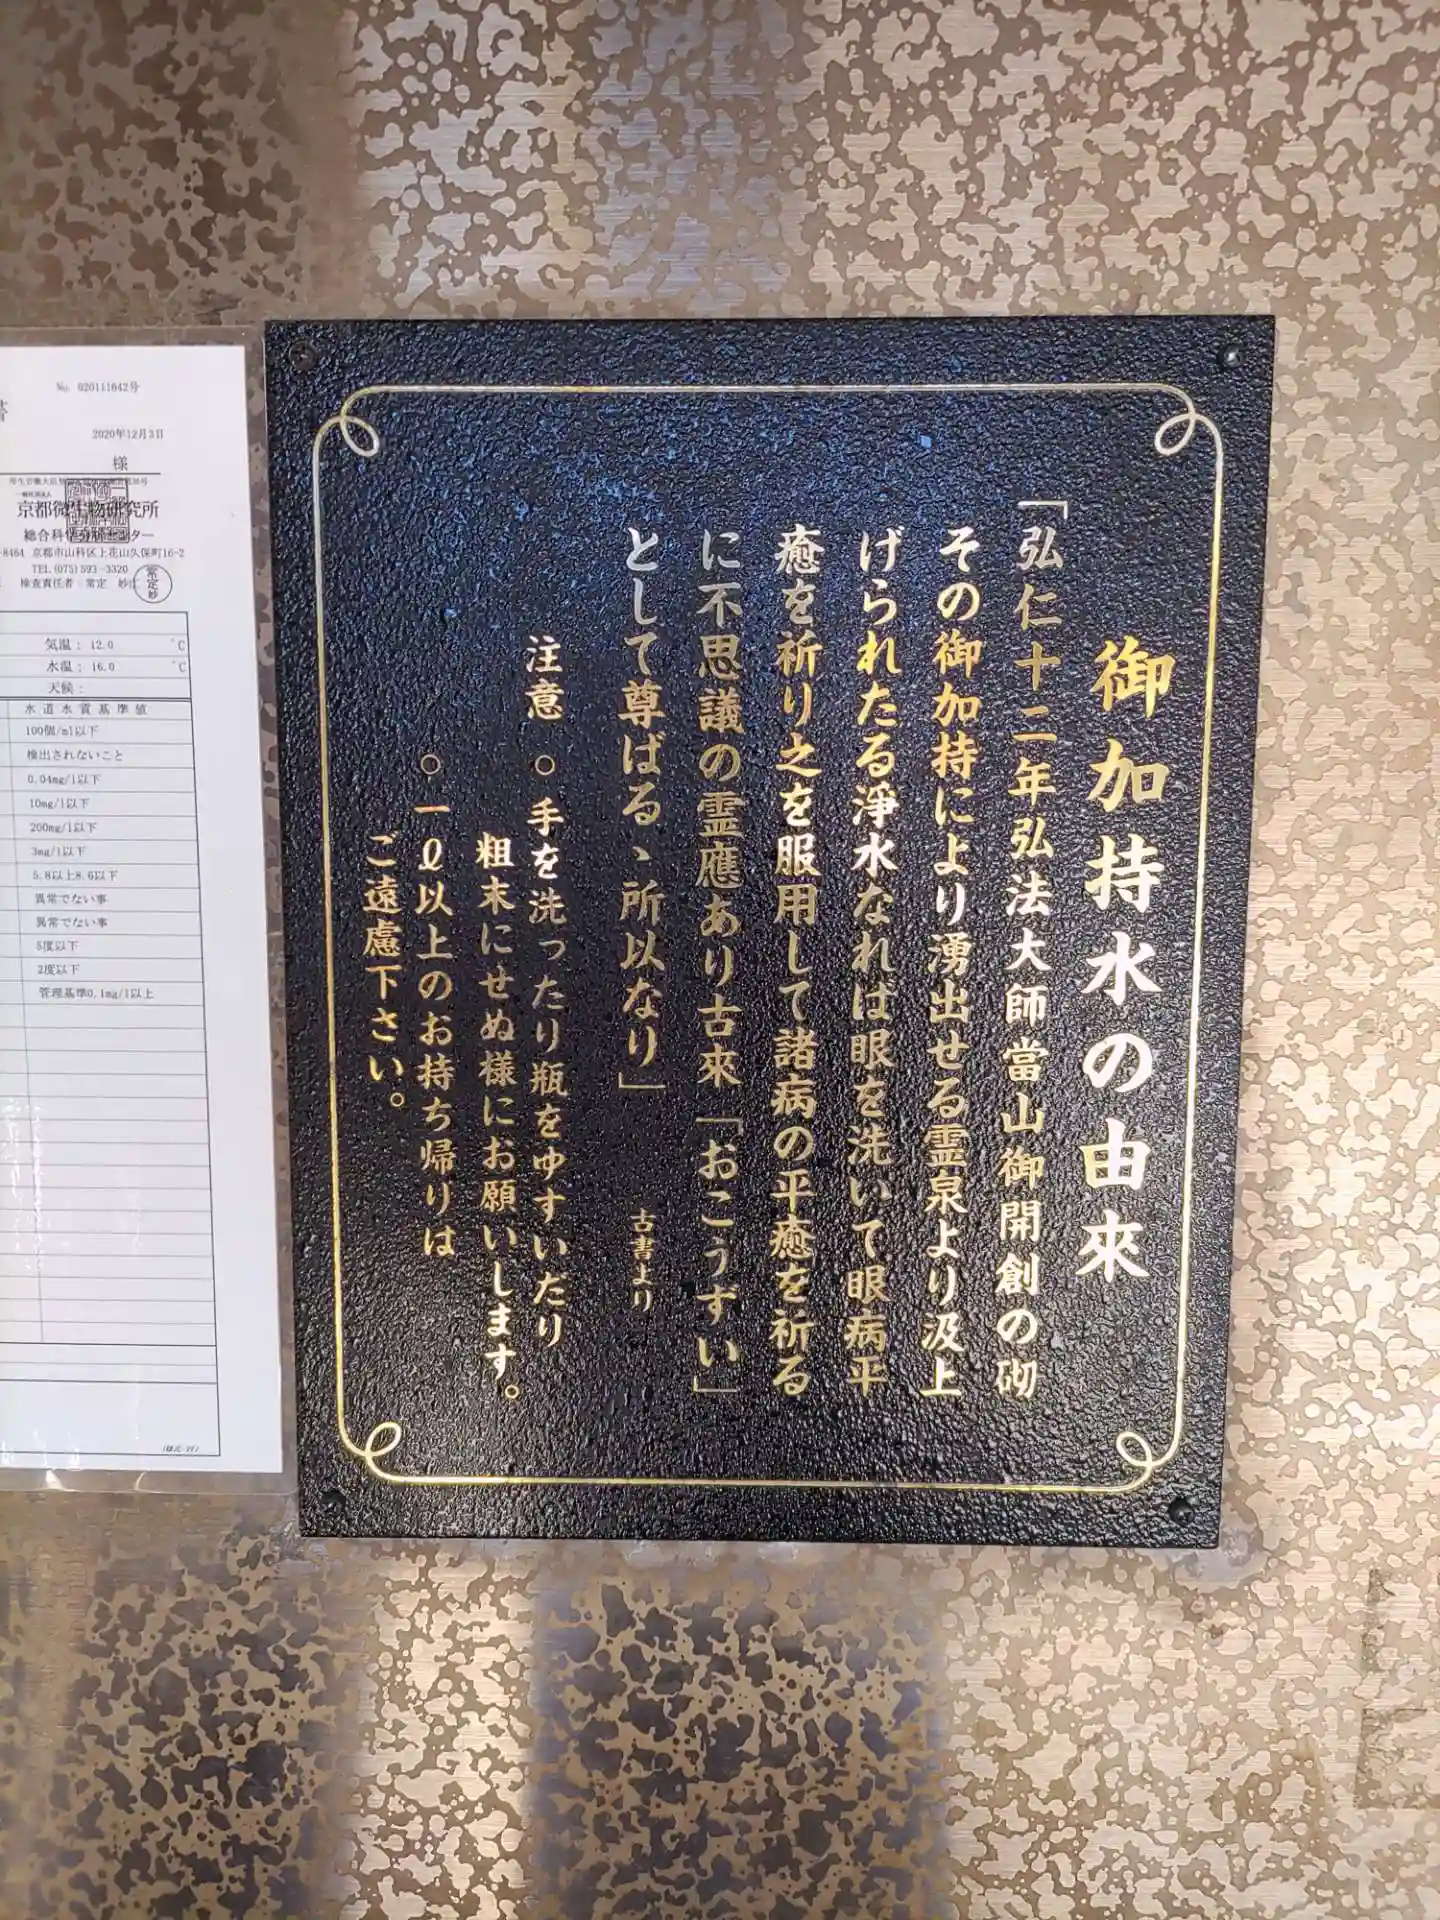 御加持水の由來
「弘仁十二年弘法大師當山御開創の砌
その御加持により湧出せる霊泉より汲上
げられたる淨水なれは眼を洗いて眼病平
癒を祈り之を服用して諸病の平癒を祈る
に不思議の霊應あり古來「おこうずい」
として尊ばるゝ所以なり」
古書より
注意 ○ 手を洗ったり瓶をゆすいだり
粗末にせぬ様にお願いします。
○ 一ℓ以上のお持ち帰りは
ご遠慮下さい。
No. 020111642号
2020年12月3日
様
京都微生物研究所
総合科学分析センター
-8464 京都市山科区上花山久保町16-2
TEL (075)593-3320
検査責任者：常定
気温： 12.0 ℃
水温： 16.0 ℃
天候：
水道水質基準値
100個/ml以下
検出されないこと
0.04mg/l以下
10mg/l以下
200mg/l以下
3mg/l以下
5.8以上8.6以下
異常でない事
異常でない事
5度以下
2度以下
管理基準0.1mg/l以上